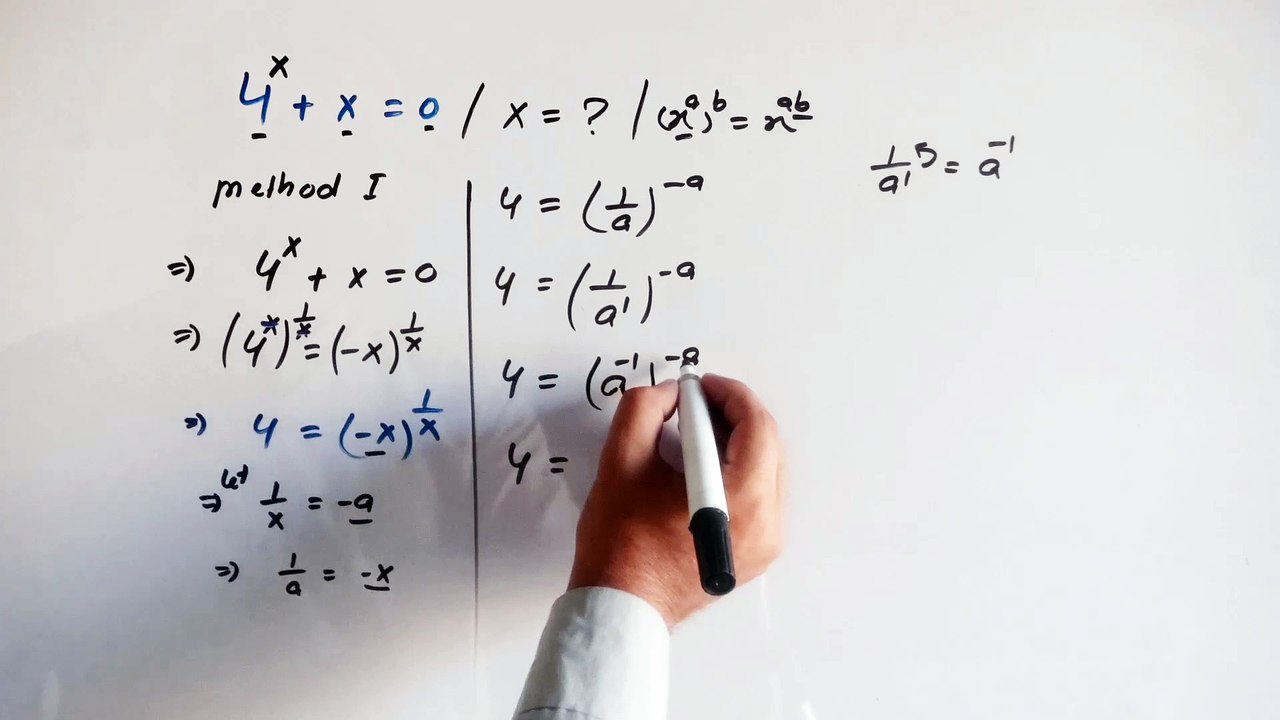 4^x + x = 0 / x = ? / (x^a)^b = x^{ab}
1/a^1 = a^{-1}
method I
=) 4^x + x = 0
=) (4^x)^{1/x} = (-x)^{1/x}
=) 4 = (-x)^{1/x}
=) let 1/x = -a
=) 1/a = -x
4 = (1/a)^{-a}
4 = (1/a^1)^{-a}
4 = (a^{-1})^{-a}
4 =